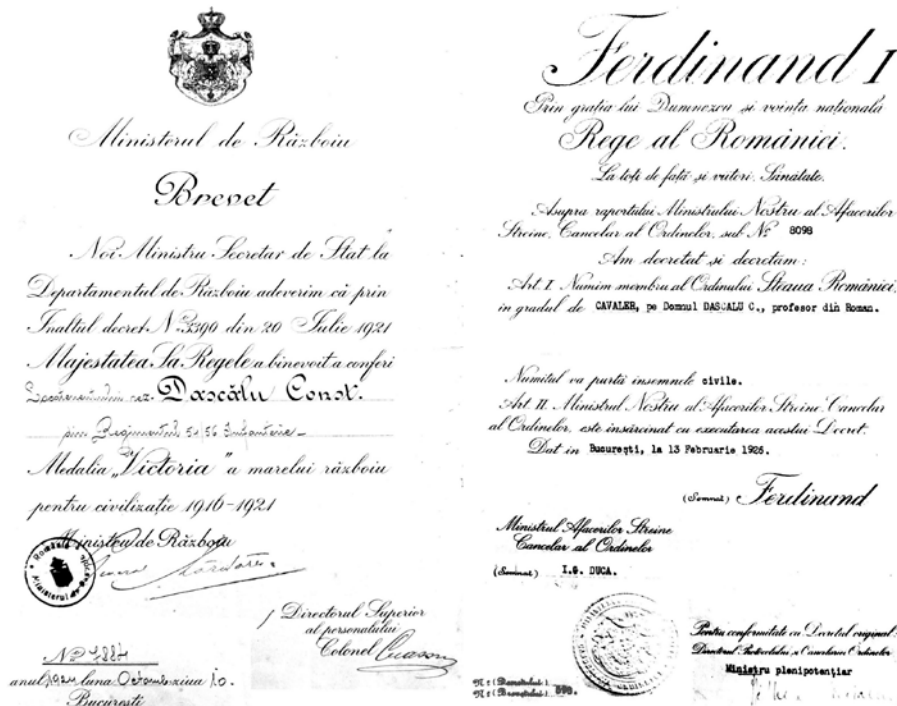 Ministerul de Războiu
Brevet
Noi Ministru Secretar de Stat la
Departamentul de Războiu adeverim că prin
Inaltul decret No. 3390 din 20 Iulie 1921
Majestatea Sa Regele a binevoit a conferi
rez. Dascălu Const.
din Regimentul 54/56 Infanterie
Medalia „Victoria" a marelui războiu
pentru civilizație 1916-1921
Ministru de Războiu
Directorul Superior
al personalului
Colonel
No
anul 1924 luna Octomb. ziua 10.
București
Ferdinand I
Prin grația lui Dumnezeu și voința națională
Rege al României.
La toți de față și viitori, Sănătate.
Asupra raportului Ministrului Nostru al Afacerilor
Streine, Cancelar al Ordinelor, sub No 8098
Am decretat și decretăm:
Art. I. Numim membru al Ordinului Steaua României,
in gradul de CAVALER, pe Domnul DASCALU C., profesor din Roman.
Numitul va purtă insemnele civile.
Art. II. Ministrul Nostru al Afacerilor Streine, Cancelar
al Ordinelor, este însărcinat cu executarea acestui Decret.
Dat in București, la 13 Februarie 1926.
(Semnat) Ferdinand
Ministrul Afacerilor Streine
Cancelar al Ordinelor
(Semnat) I.G. DUCA.
Pentru conformitate cu Decretul original:
Directorul Protocolului și Cancelariei Ordinelor
Ministru plenipotențiar